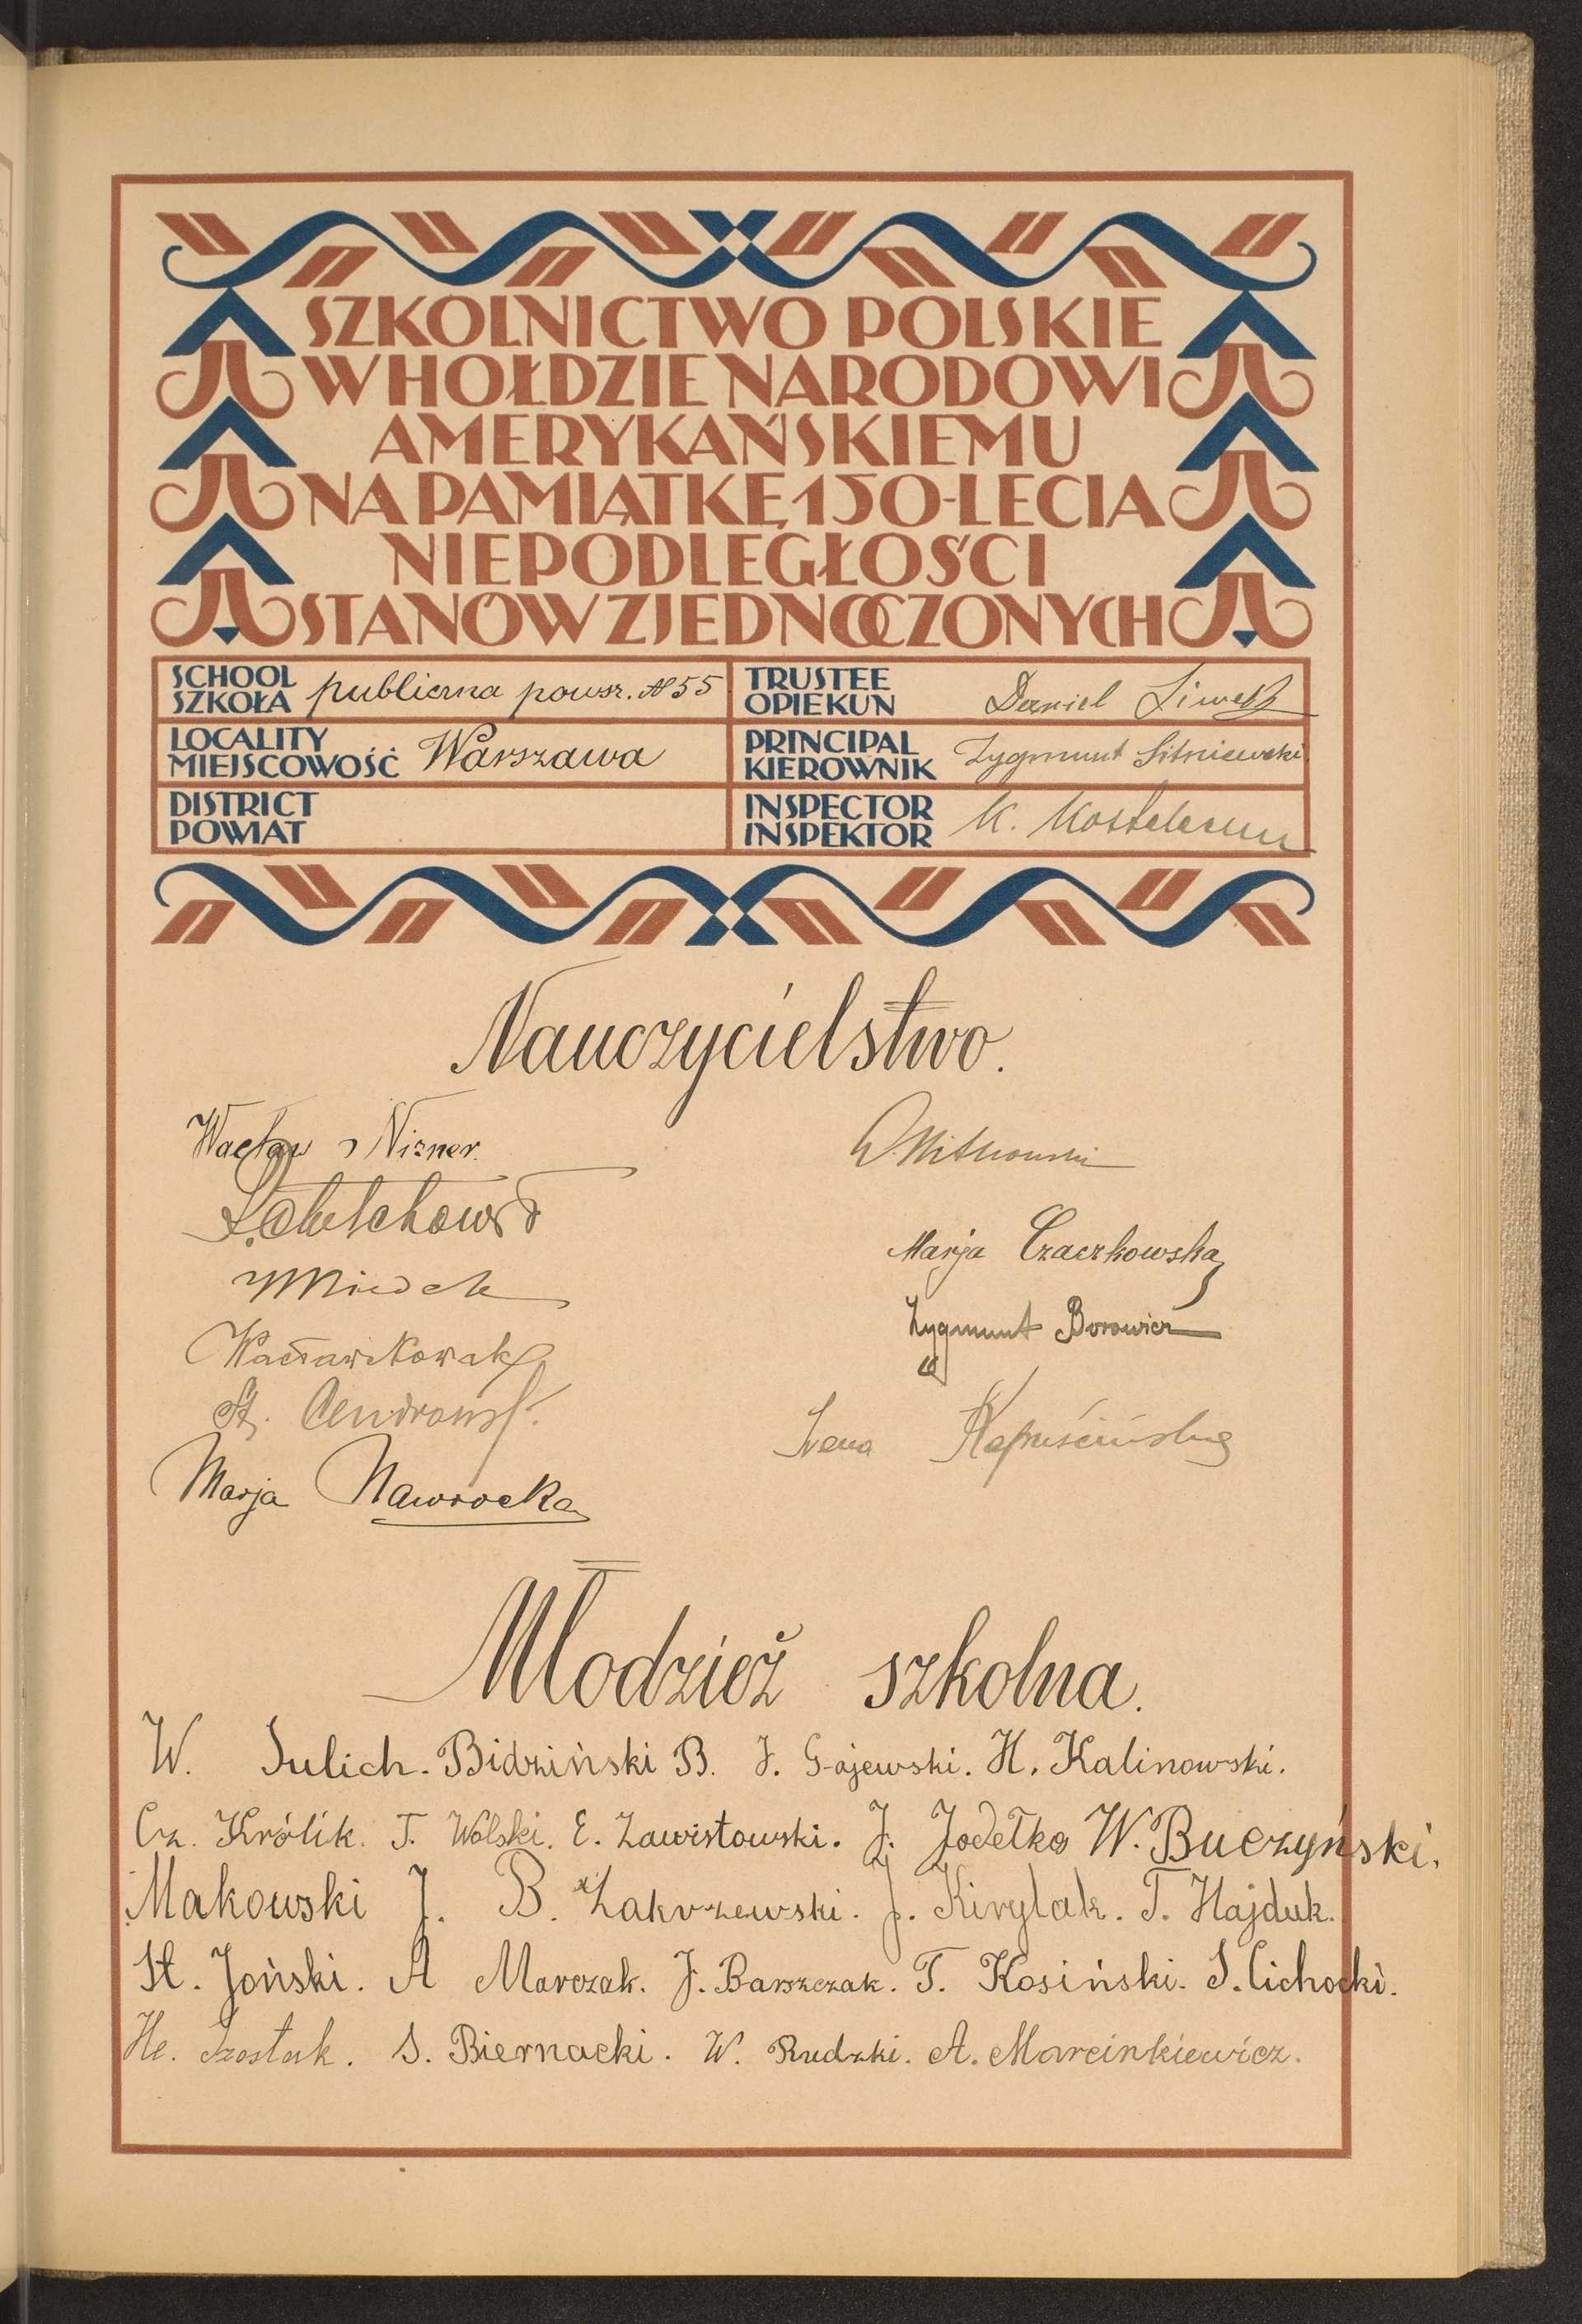 SZKOLNICTWO POLSKIE
W HOŁDZIE NARODOWI
AMERYKAŃSKIEMU
NA PAMIĄTKĘ 150-LECIA
NIEPODLEGŁOŚCI
STANÓW ZJEDNOCZONYCH
SCHOOL
SZKOŁA publiczna powsz. № 55
TRUSTEE
OPIEKUN Daniel
LOCALITY
MIEJSCOWOŚĆ Warszawa
PRINCIPAL
KIEROWNIK Zygmunt Sitniewski
DISTRICT
POWIAT
INSPECTOR
INSPEKTOR K.
Nauczycielstwo.
Wacław Nizner
W. Witkowski
Marja Czaczkowska
Zygmunt Borowicz
Wacław Nowak
St.
Irena Kapuścińska
Marja Nawrocka
Młodzież szkolna.
W. Sulich. Bidziński B. J. Gajewski. H. Kalinowski.
Cz. Królik. T. Wolski. E. Zawistowski. J. Jodełko W. Buczyński.
Makowski J. B. Zakrzewski. J. Kirylak. T. Hajduk.
St. Joński. A Marczak. J. Barszczak. T. Kosiński. S. Cichocki.
He. Szostak. S. Biernacki. W. Rudzki. A. Marcinkiewicz.